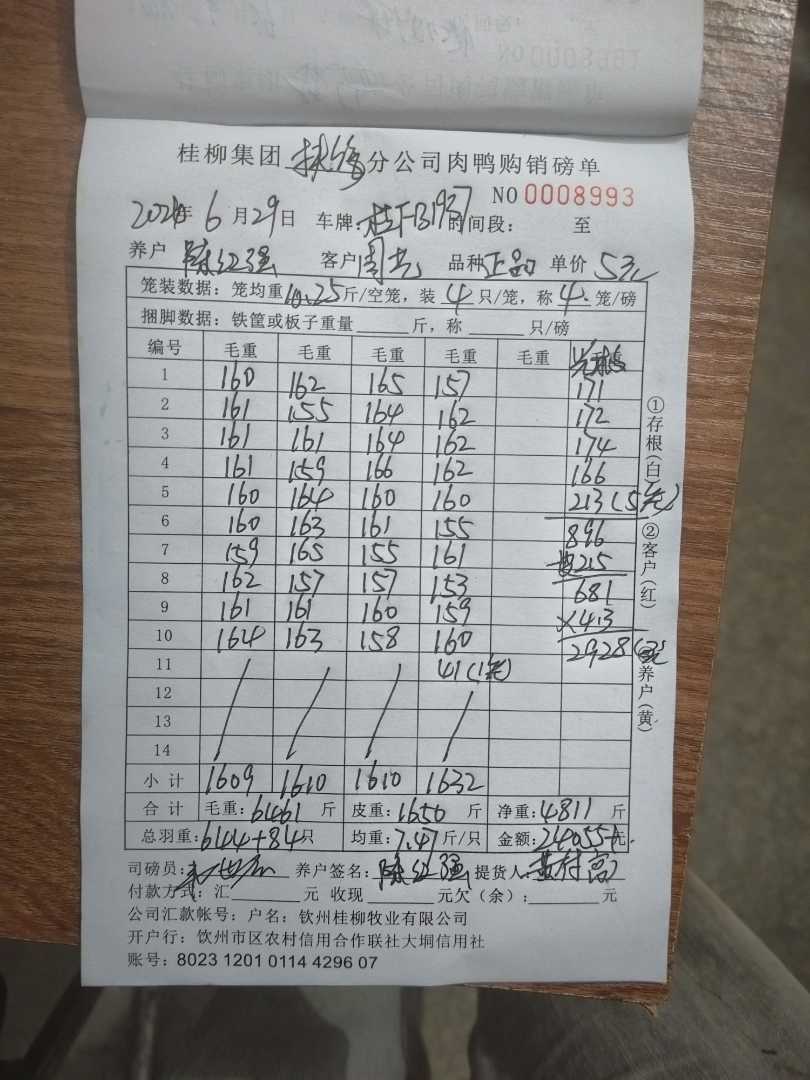 桂柳集团 分公司肉鸭购销磅单
NO 0008993
年 6 月 29 日 车牌: 桂 B1937 时间段: 至
养户 陈红强 客户 周 品种 正品 单价 5元
笼装数据: 笼均重 10.25 斤/空笼, 装 4 只/笼, 称 4 笼/磅
捆脚数据: 铁筐或板子重量 斤, 称 只/磅
编号 毛重 毛重 毛重 毛重 毛重
1 160 162 165 157 171
2 161 155 164 162 172
3 161 161 164 162 174
4 161 159 166 162 166
5 160 164 160 160 213 (5笼)
6 160 163 161 155 896
7 159 165 155 161 215
8 162 157 157 153 681
9 161 161 160 159 ×4.3
10 164 163 158 160 2928
11 41 (1笼)
12
13
14
小计 1609 1610 1610 1632
合计 毛重: 6461 斤 皮重: 1650 斤 净重: 4811 斤
总羽重: 644+84 只 均重: 7.47 斤/只 金额: 24055 元
司磅员: 养户签名: 陈红强 提货人:
付款方式: 汇 元 收现 元 欠(余): 元
公司汇款帐号: 户名: 钦州桂柳牧业有限公司
开户行: 钦州市区农村信用合作联社大垌信用社
账号: 8023 1201 0114 4296 07
①存根(白)
②客户(红)
养户(黄)